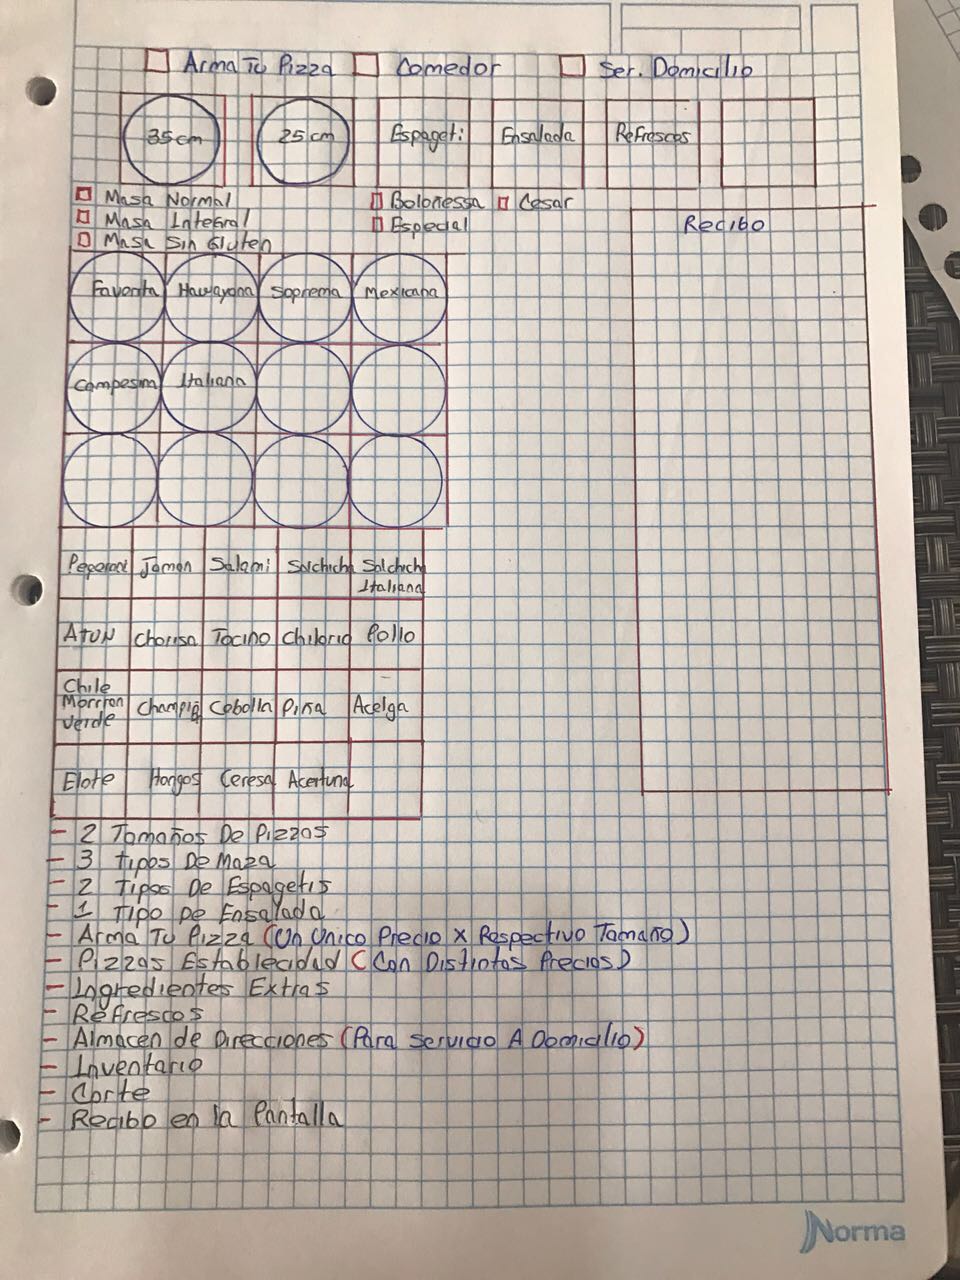 Arma Tu Pizza Comedor Ser. Domicilio
35cm 25cm Espageti Ensalada Refrescos
Masa Normal Bolonessa Cesar
Masa Integral Especial Recibo
Masa Sin Gluten
Favorita Hawayana Soprema Mexicana
Campesina Italiana
Peperoni Jamon Salami Salchicha Salchicha
Italiana
Atun Chorisa Tocino Chilorio Pollo
Chile
Morrron
verde Champiñ Cebolla Piña Acelga
Elote Hongos Ceresa Acertuna
- 2 Tamaños De Pizzas
- 3 Tipos De Maza
- 2 Tipos De Espagetis
- 1 Tipo De Ensalada
- Arma Tu Pizza (Un Unico Precio x Respectivo Tamaño)
- Pizzas Establecidad (Con Distintos Precios)
- Ingredientes Extras
- Refrescos
- Almacen de Direcciones (Para Servicio A Domicilio)
- Inventario
- Corte
- Recibo en la Pantalla
Norma